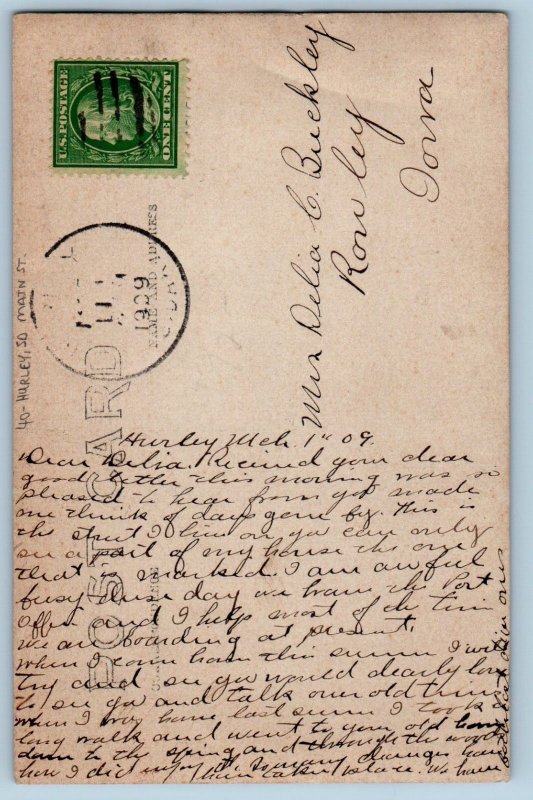 U.S. POSTAGE
ONE CENT
Mrs Delia C. Buckley
Rowley
Iowa
1909
S. DAK.
NAME AND ADDRESS
POST CARD
40- HURLEY, SD MAIN ST.
Hurley Mch. 1st 09.
Dear Delia. Recieved your dear
good letter this morning was so
pleased to hear from you made
me think of days gone by. This is
the street I live on you can only
see a part of my house the one
that is marked. I am awful
busy these days we have the Post
Office and I help most of the time
we are boarding at present.
when I come home this summ I will
try and see you would dearly love
to see you and talk over old times
when I was home last summ I took a
long walk and went to your old home
down to the spring and through the woods
how I did enjoy it. So many changes have
been taken place. We have